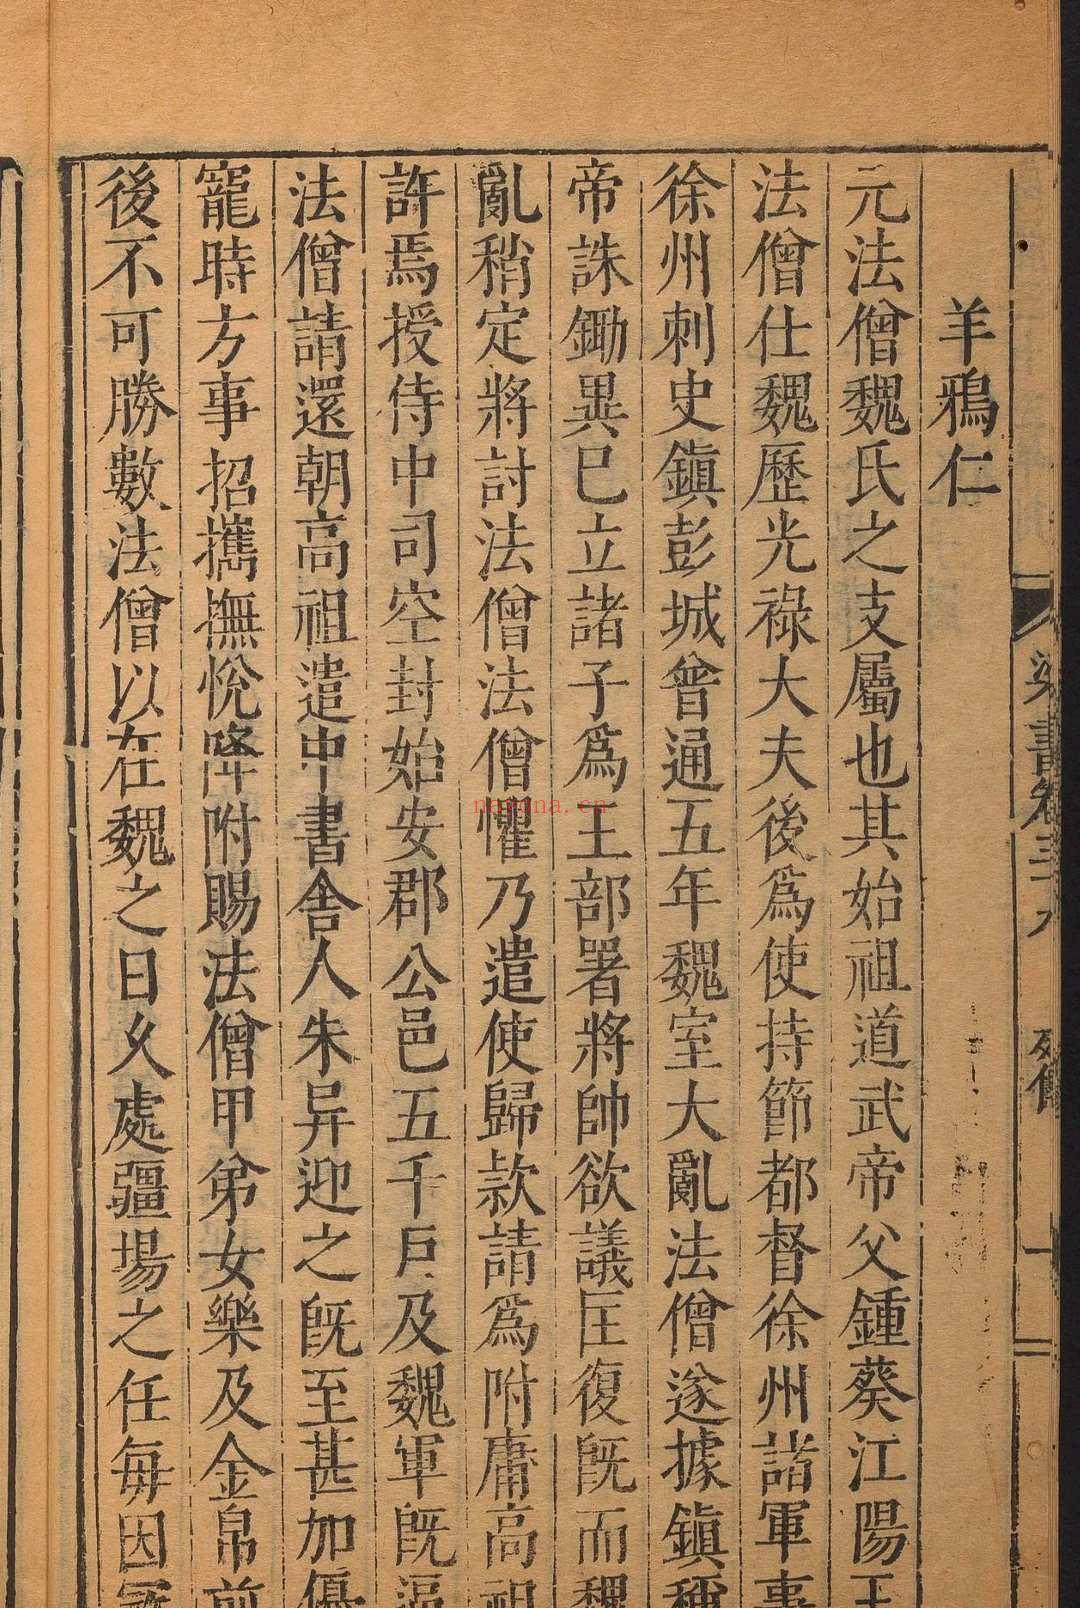 梁書卷三九
列傳
一
羊鴉仁
元法僧魏氏之支屬也其始祖道武帝父鍾葵江陽王
法僧仕魏歷光祿大夫後爲使持節都督徐州諸軍事
徐州刺史鎮彭城普通五年魏室大亂法僧遂據鎮稱
帝誅鋤異巳立諸子爲王部署將帥欲議匡復旣而魏
亂稍定將討法僧法僧懼乃遣使歸款請爲附庸高祖
許焉授侍中司空封始安郡公邑五千戶及魏軍旣逼
法僧請還朝高祖遣中書舍人朱异迎之旣至甚加優
寵時方事招攜撫悅降附賜法僧甲第女樂及金帛前
後不可勝數法僧以在魏之日久處疆場之任每因寇
nayona.cn